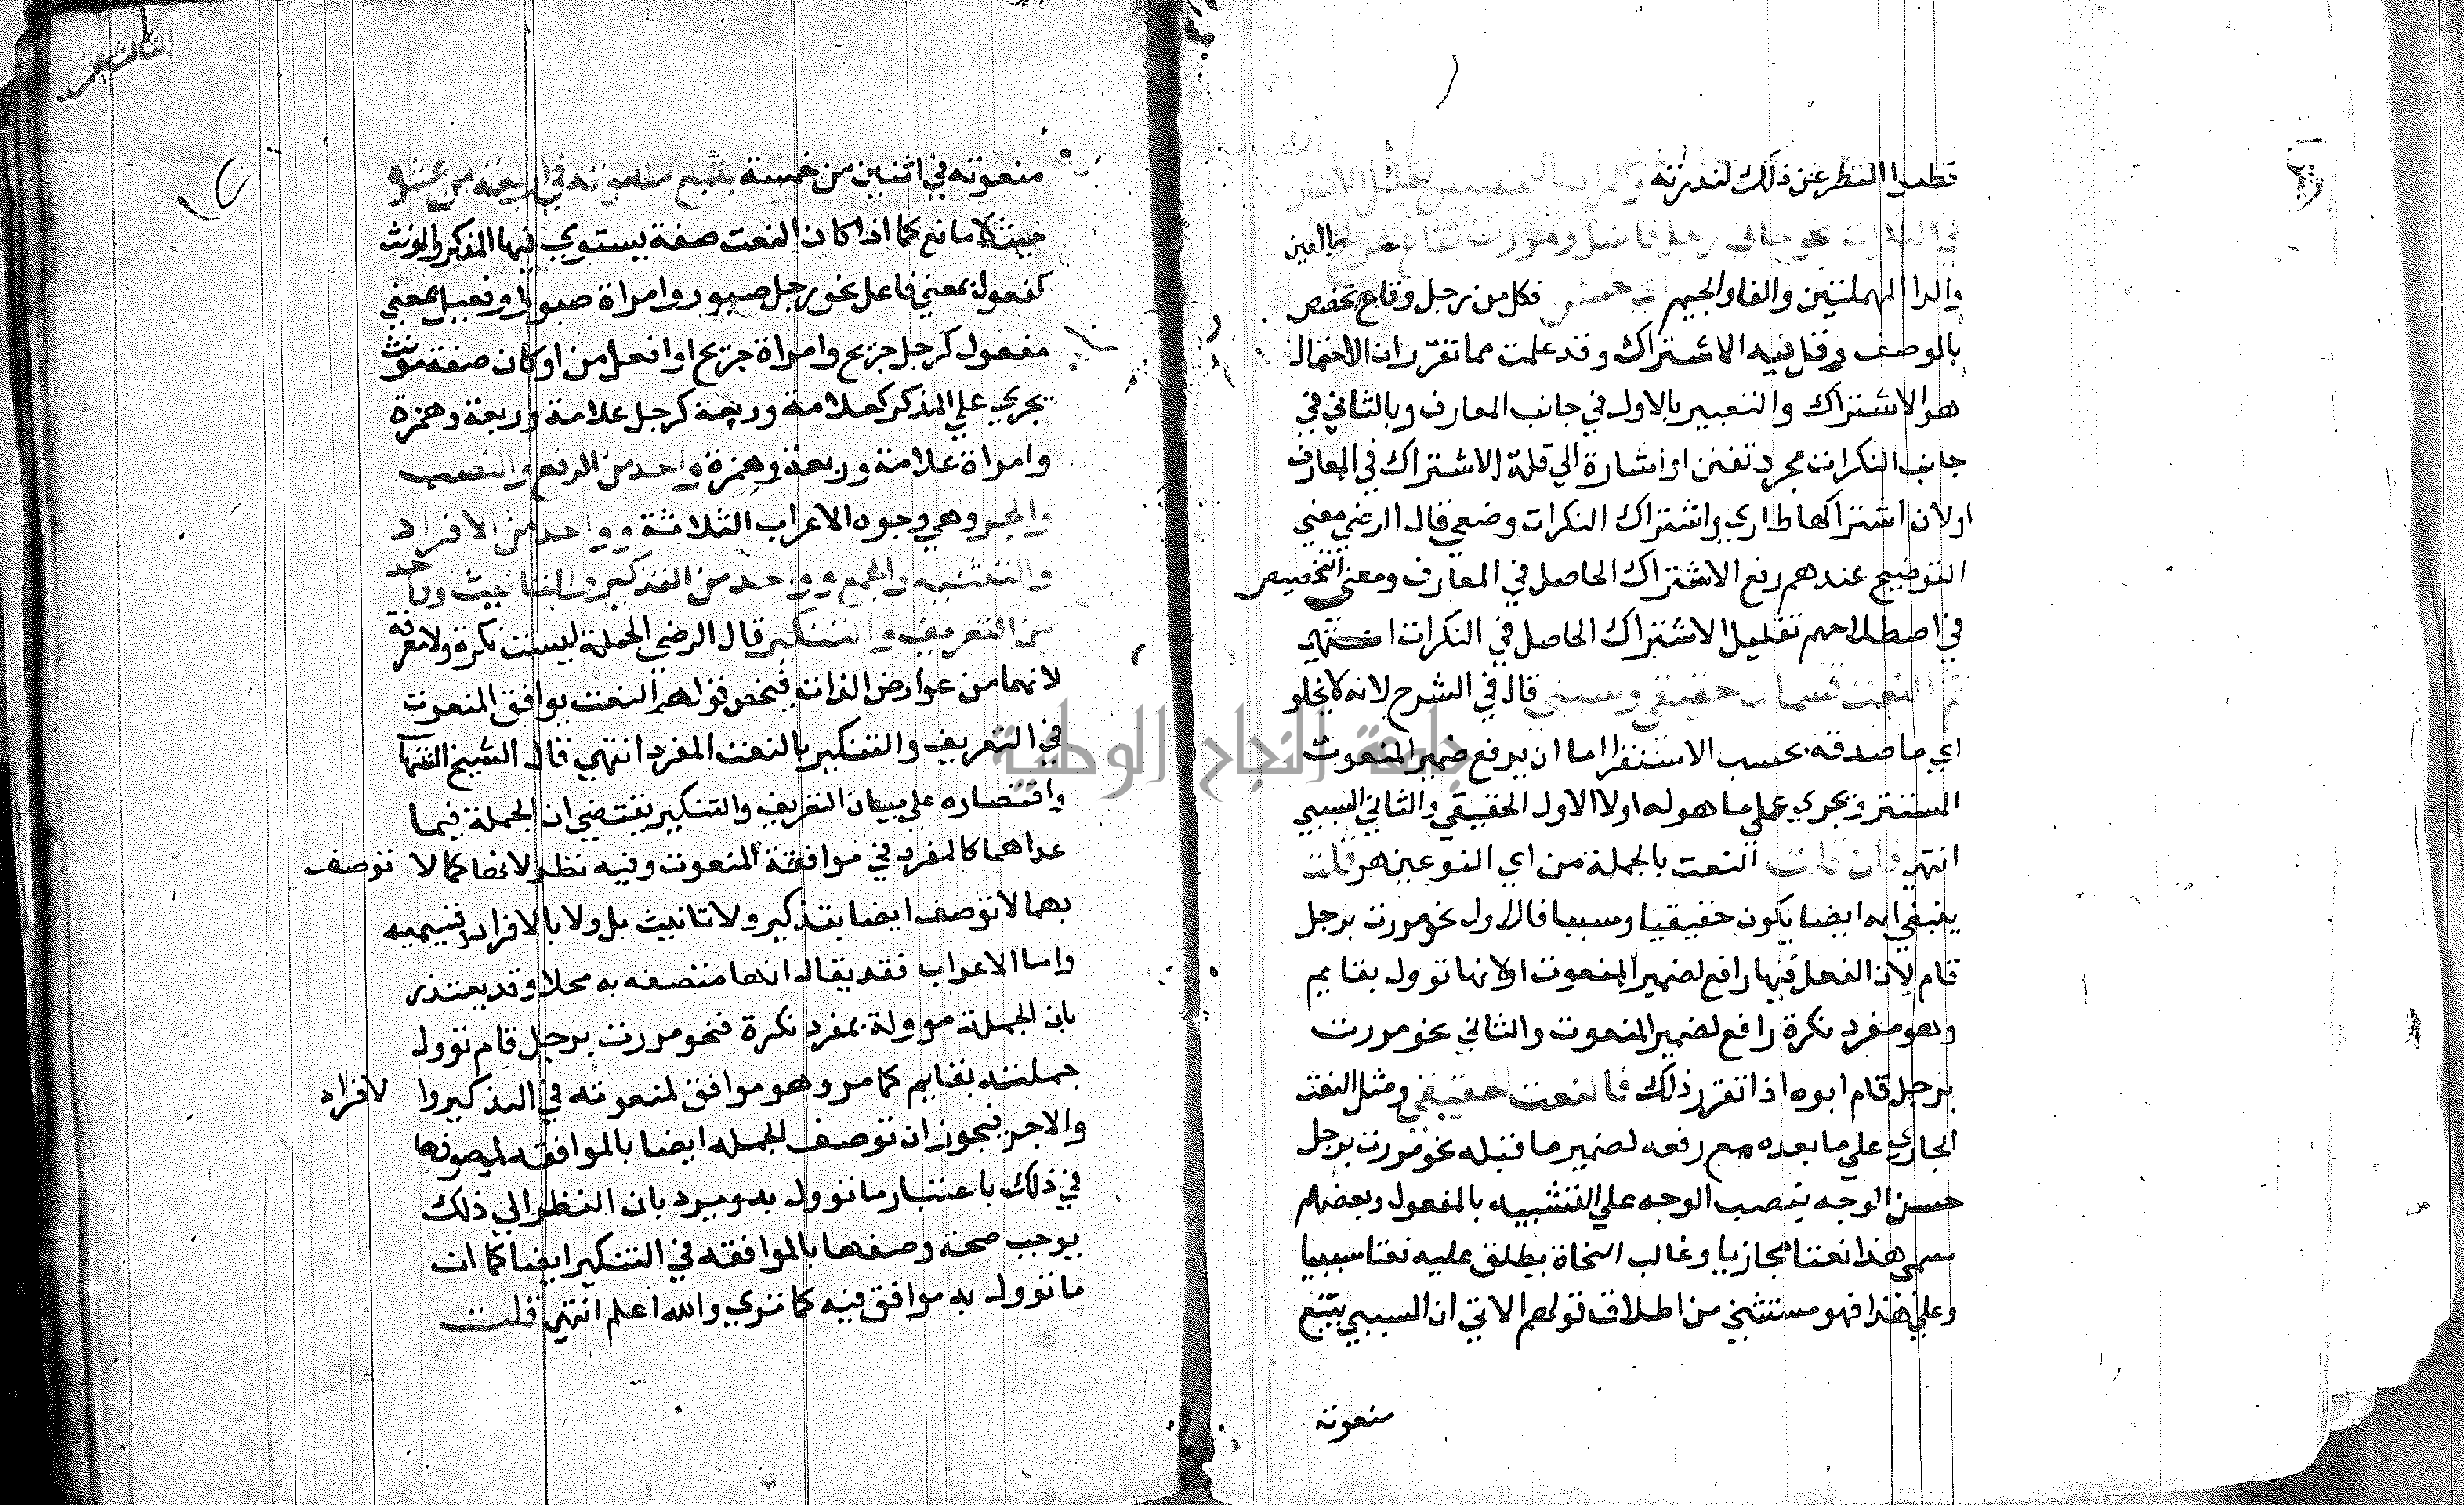 قطعوا النظر عن ذلك لندرته والمراد بالتخصيص تقليل الاشتراك
في النكرات نحو جاني رجل فاضل ومررت بقاع عرفج بالعين
والرا المهملتين والفا والجيم خشن فكل من رجل وقاع تخصص
بالوصف وقل فيه الاشتراك وقد علمت مما تقرر ان الاحتمال
هو الاشتراك والتعبير بالاول في جانب المعارف وبالثاني في
جانب النكرات مجرد تفنن او اشارة الي قلة الاشتراك في المعارف
اولان اشتراكها طاري واشتراك النكرات وضعي قال الرضي معني
التوضيح عندهم رفع الاشتراك الحاصل في المعارف ومعني التخصيص
في اصطلاحهم تقليل الاشتراك الحاصل في النكرات انتهي
ثم النعت قسمان حقيقي وسببي قال في الشرح لانه لا يخلو
اي ما صدقه بحسب الاستقرا اما ان يرفع ضمير المنعوت
المستتر ويجري علي ما هو له اولا الاول الحقيقي والثاني السببي
انتهي فان قلت النعت بالجملة من اي النوعين هو قلت
ينبغي انه ايضا يكون حقيقيا وسببيا فالاول نحو مررت برجل
قام لان الفعل فيها رافع لضمير المنعوت اولانها توول بقايم
وهو مفرد نكرة رافع لضمير المنعوت والثاني نحو مررت
برجل قام ابوه اذا تقرر ذلك فالنعت حقيقي ومثل النعت
الجاري علي ما بعده مع رفعه لضمير ما قبله نحو مررت برجل
حسن الوجه بنصب الوجه علي التشبيه بالمفعول وبعضهم
سمي هذا نعتا مجازيا وغالب النحاة يطلق عليه نعتا سببيا
وعلي هذا فهو مستثني من اطلاق قولهم الاتي ان السببي يتبع
منعوته
منعوته في اثنين من خمسة يتبع منعوته في اربعة من عشرة
حيث لا مانع كما اذا كان النعت صفة يستوي فيها المذكر والمونث
كفعول بمعني فاعل نحو رجل صبور وامراة صبور او فعيل بمعني
مفعول كرجل جريح وامراة جريح او افعل من او كان صفة مونث
تجري علي المذكر كعلامة وربعة كرجل علامة وربعة وهمزة
وامراة علامة وربعة وهمزة واحد من الرفع والنصب
والجر وهي وجوه الاعراب الثلاثة وواحد من الافراد
والتثنيه والجمع وواحد من التذكير والتانيث وواحد
من التعريف والتنكير قال الرضي الجملة ليست نكرة ولا معرفة
لانهما من عوارض الذات فيخص قولهم النعت يوافق المنعوت
في التعريف والتنكير بالنعت المفرد انتهي قال الشيخ
واقتصاره علي بيان التعريف والتنكير يقتضي ان الجملة فيما
عداهما كالمفرد في موافقة المنعوت وفيه نظر لانها كما لا توصف
بهما لا توصف ايضا بتذكير ولا تانيث بل ولا بالافراد وقسيميه
واما الاعراب فقد يقال انها متصفه به محلا وقد يعتذر
بان الجملة موولة بمفرد نكرة فنحو مررت برجل قام توول
جملته بقايم كما مر وهو موافق لمنعوته في التذكير والافراد
والاجر فيجوز ان توصف الجمله ايضا بالموافقه لموصوفها
في ذلك باعتبار ما توول به ويرد بان النظر الي ذلك
يوجب صحة وصفها بالموافقه في التنكير ايضا كما ان
ما توول به موافق فيه كما تري والله اعلم انتهي قلت